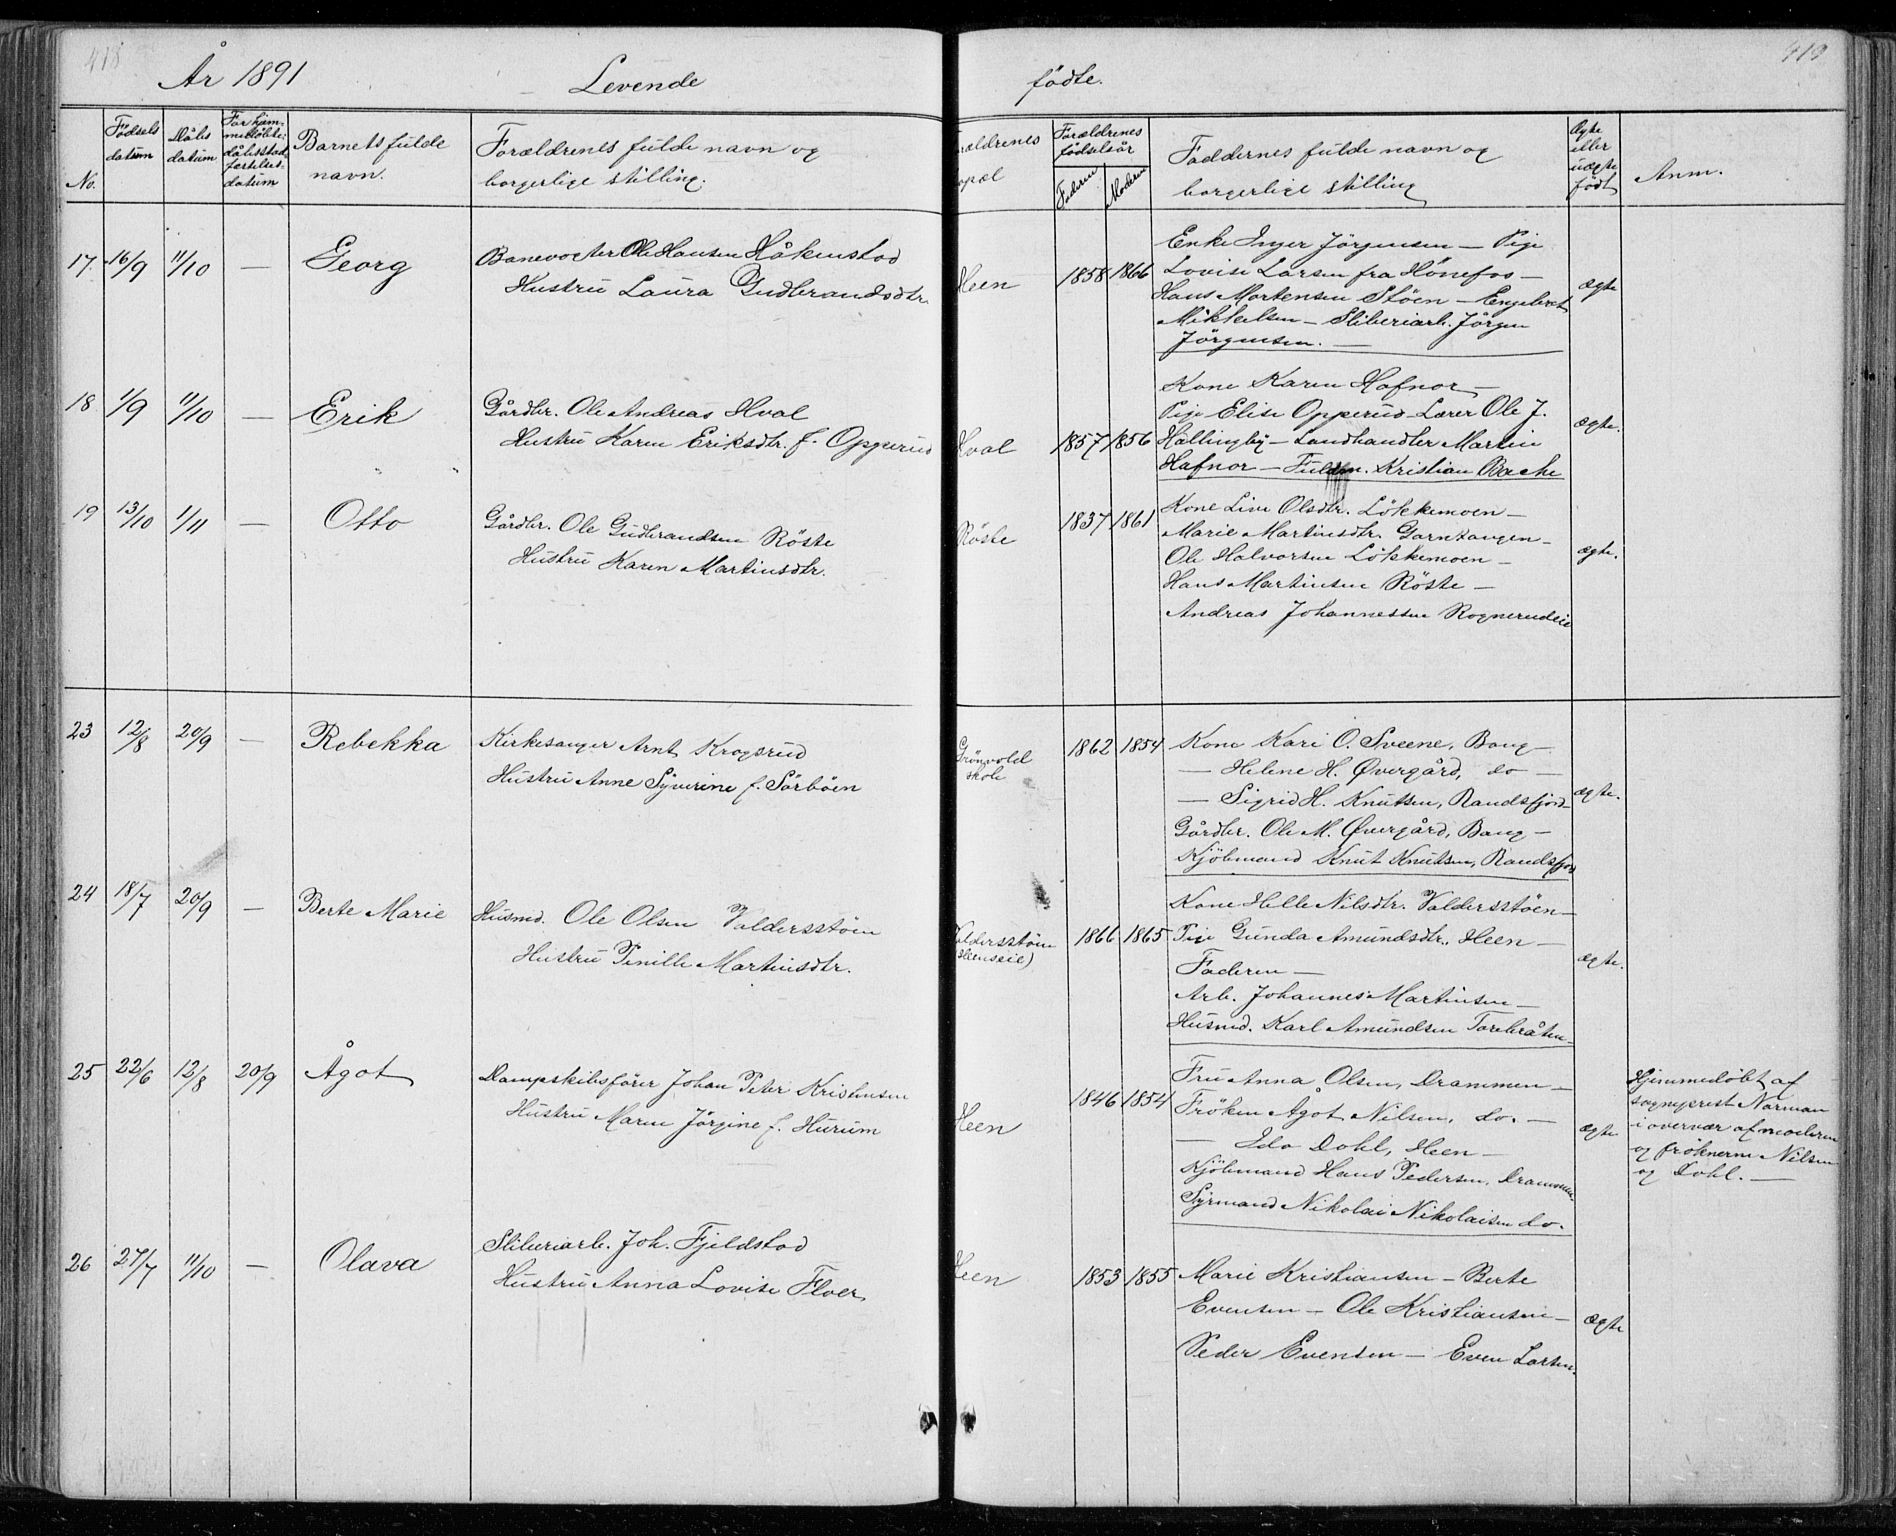 418
År 1891 Levende
No.
Fødsels datum
Dåbs datum
For hjemmedøbte: dåbsstadfestelsesdatum
Barnets fulde navn.
Forældrenes fulde navn og
borgerlige stilling.
17 16/9 11/10 — Georg
Banevogter Ole Hansen Håkenstad
Hustru Laura Gudbrandsdtr.
18 1/9 11/10 — Erik
Gårdbr. Ole Andreas Hval
Hustru Karen Eriksdtr. f. Opperud
19 13/10 1/11 — Otto
Gårdbr. Ole Gudbrandsen Röste
Hustru Karen Martinsdtr.
23 12/8 20/9 — Rebekka
Kirkesanger Arnt Krogsrud
Hustru Anne Syverine f. Sörböen
24 18/7 20/9 — Berte Marie
Husmd. Ole Olsen Valdersstöen
Hustru Pernille Martinsdtr.
25 22/6 12/8 20/9 Ågot
Dampskibsfører Johan Peter Kristensen
Hustru Maren Jörgine f. Hurum
26 27/7 11/10 — Olava
Sliberiarb. Joh. Fjeldstad
Hustru Anna Lovise Floer
419
födte.
Forældrenes
bopæl
Forældrenes
födselsår
Faderen
Moderen
Faddernes fulde navn og
borgerlige stilling
Ægte
eller
uægte
födt
Anm.
Enke Inger Jörgensen — Pige
Lovise Larsen fra Hönefos —
Heen 1858 1866
Hans Mortensen Stöen — Engebret
Mikkelsen — Sliberiarb. Jörgen
Jörgensen. —
ægte
Kone Karen Hafnor —
Pige Elise Opperud — Lærer Ole J.
Hval 1857 1856 Hallingby — Landhandler Martin
Hafnor — Fuldm. Kristian Bache
ægte.
Kone Live Olsdtr. Lökkemoen —
Röste 1837 1861
Marie Martinsdtr. Garntangen —
Ole Halvorsen Lökkemoen —
Hans Martinsen Röste —
Andreas Johannessen Rognerudeie
ægte.
Grönvold
skole
1862 1854 Kone Kari O. Sveene, Bang —
— Helene H. Øvergård, do —
— Sigrid H. Knutsen, Randsfjord
Gårdbr. Ole M. Øvergård, Bang —
Kjöbmand Knut Knutsen, Randsfjord
ægte.
Kone Helle Nilsdtr. Valdersstöen —
Valdersstöen
(Heenseie)
1866 1865 Pige Gunda Amundsdtr. Heen —
Faderen —
Arb. Johannes Martinsen —
Husmd. Karl Amundsen Torebråten
ægte.
Fru Anna Olsen, Drammen —
Heen 1846 1854 Fröken Ågot Nilsen, do. —
— Ida Dahl, Heen —
Kjöbmand Hans Pedersen, Drammen
Styrmand Nikolai Nikolaisen do.
ægte
Hjemmedöbt af
sogneprest Norman
i overvær af moderen
og frøknerne Nilsen
og Dahl. —
Heen 1853 1855 Marie Kristiansen — Berte
Evensen — Ole Kristiansen —
Peder Evensen — Even Larsen.
ægte